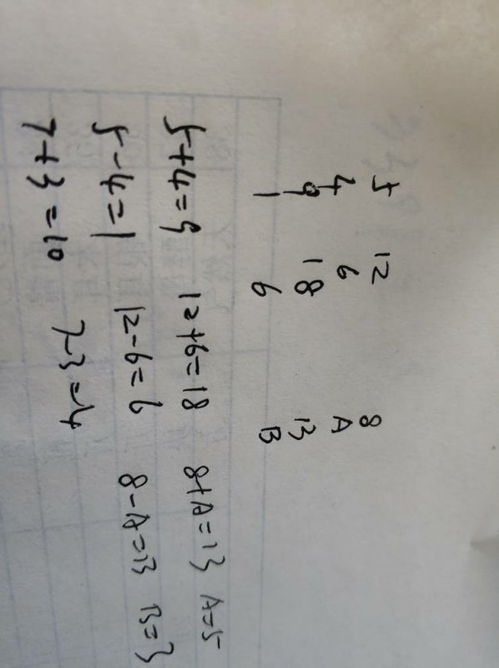 5 12 8
4 6 A
9 18 13
1 6 B
5+4=9 12+6=18 8+A=13 A=5
5-4=1 12-6=6 8-A=B B=3
7+3=10 7-3=4